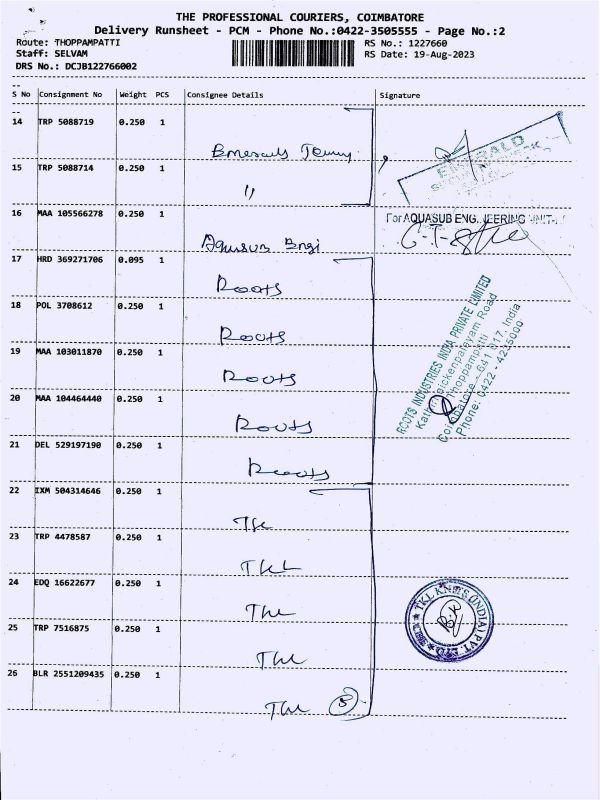 THE PROFESSIONAL COURIERS, COIMBATORE
Delivery Runsheet - PCM - Phone No.:0422-3505555 - Page No.:2
Route: THOPPAMPATTI
RS No.: 1227660
Staff: SELVAM
RS Date: 19-Aug-2023
DRS No.: DCJB122766002
S No Consignment No Weight PCS Consignee Details Signature
14 TRP 5088719 0.250 1
15 TRP 5088714 0.250 1 "
EMERALD
16 MAA 105566278 0.250 1
For AQUASUB ENGINEERING UNIT
Aquasub Engi
17 HRD 369271706 0.095 1
Roots
18 POL 3708612 0.250 1
Roots
19 MAA 103011870 0.250 1
Roots
20 MAA 104464440 0.250 1
Roots
21 DEL 529197190 0.250 1
Roots
ROOTS INDUSTRIES INDIA PRIVATE LIMITED
Road
Thoppampatti
Coimbatore - 641 017, India
Phone: 0422 - 4235000
22 IXM 504314646 0.250 1
23 TRP 4478587 0.250 1
TKL
24 EDQ 16622677 0.250 1
25 TRP 7516875 0.250 1
26 BLR 2551209435 0.250 1
5
TKL KNITS (INDIA) PVT. LTD